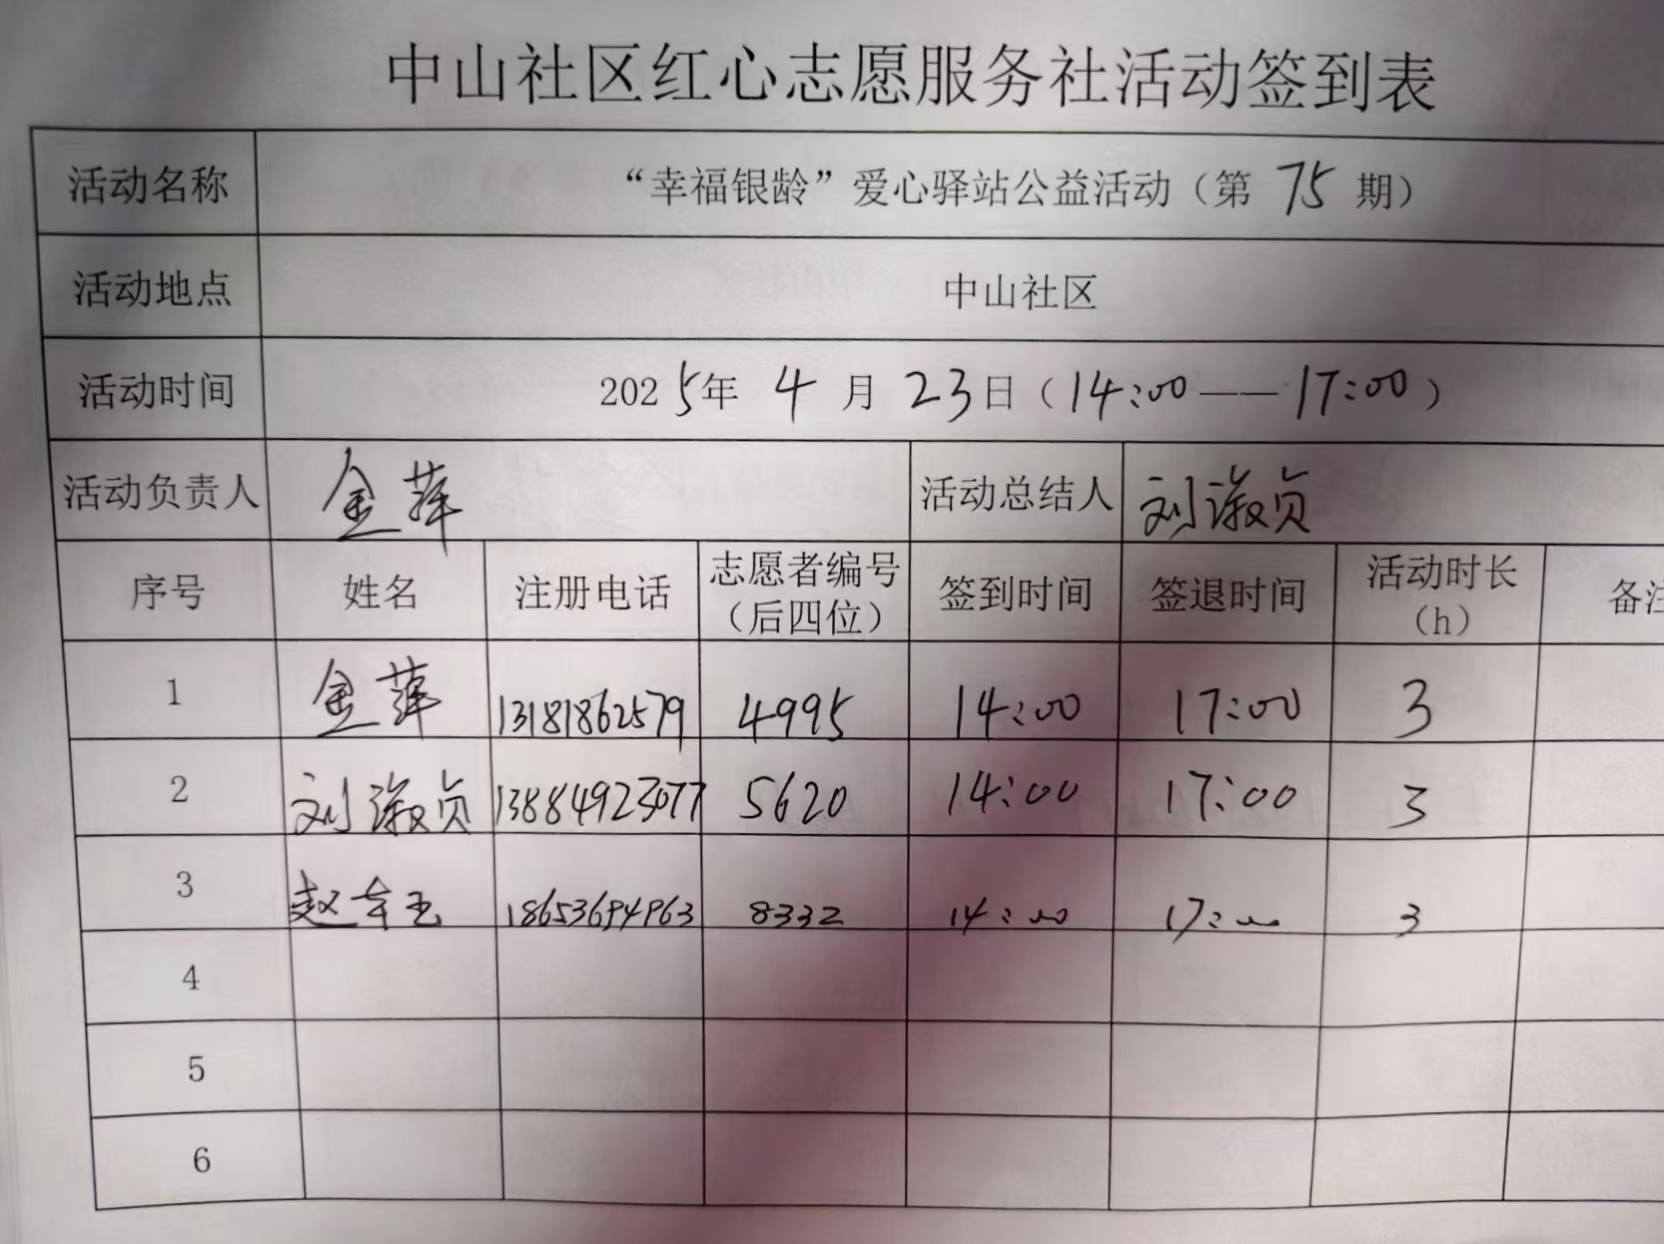 中山社区红心志愿服务社活动签到表
活动名称 “幸福银龄”爱心驿站公益活动（第 75 期）
活动地点 中山社区
活动时间 2025年 4 月 23日（14:00——17:00）
活动负责人 金萍 活动总结人 刘淑贞
序号 姓名 注册电话 志愿者编号（后四位） 签到时间 签退时间 活动时长（h） 备注
1 金萍 13181862579 4995 14:00 17:00 3
2 刘淑贞 13884923077 5620 14:00 17:00 3
3 赵 8332 14:00 17:00 3
4
5
6